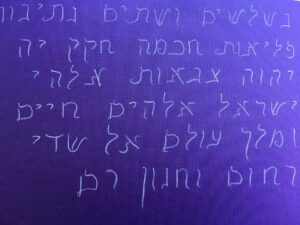 בשלשים ושתים נתיבות
פליאות חכמה חקק יה
יהוה צבאות אלהי
ישראל אלהים חיים
ומלך עולם אל שדי
רחום וחנון רם